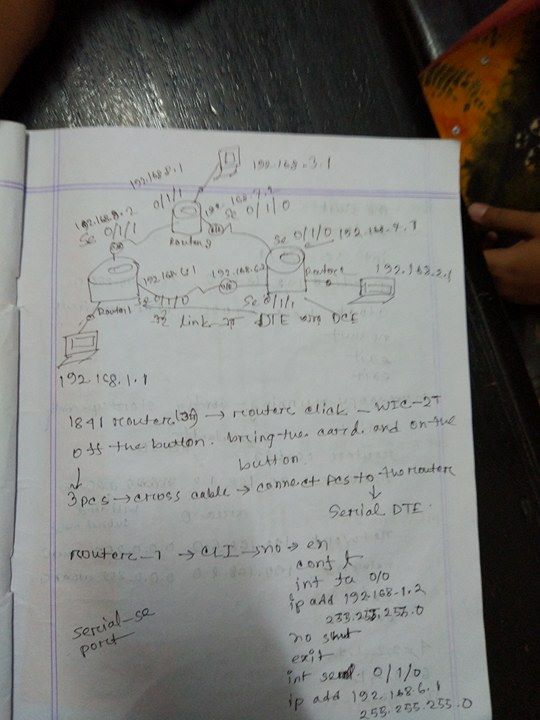 192.168.8.1
192.168.3.1
0/1/1
192.168.7.2
192.168.8.2
Se 0/1/1
Se 0/1/0
Router3
Se 0/1/0 192.168.7.1
192.168.6.1
192.168.6.2
Router2
192.168.2.1
Router1
Se 0/1/0
Se 0/1/1
Link DTE DCE
192.168.1.1
1841 router → router click - WIC-2T
off the button. bring the card. and on the
button
3 pcs → cross cable → connect pcs to the router
Serial DTE
router-1 → CLI → no → en
conf t
int fa 0/0
ip add 192.168.1.2
255.255.255.0
no shut
exit
serial-se
port
int se 0/1/0
ip add 192.168.6.1
255.255.255.0